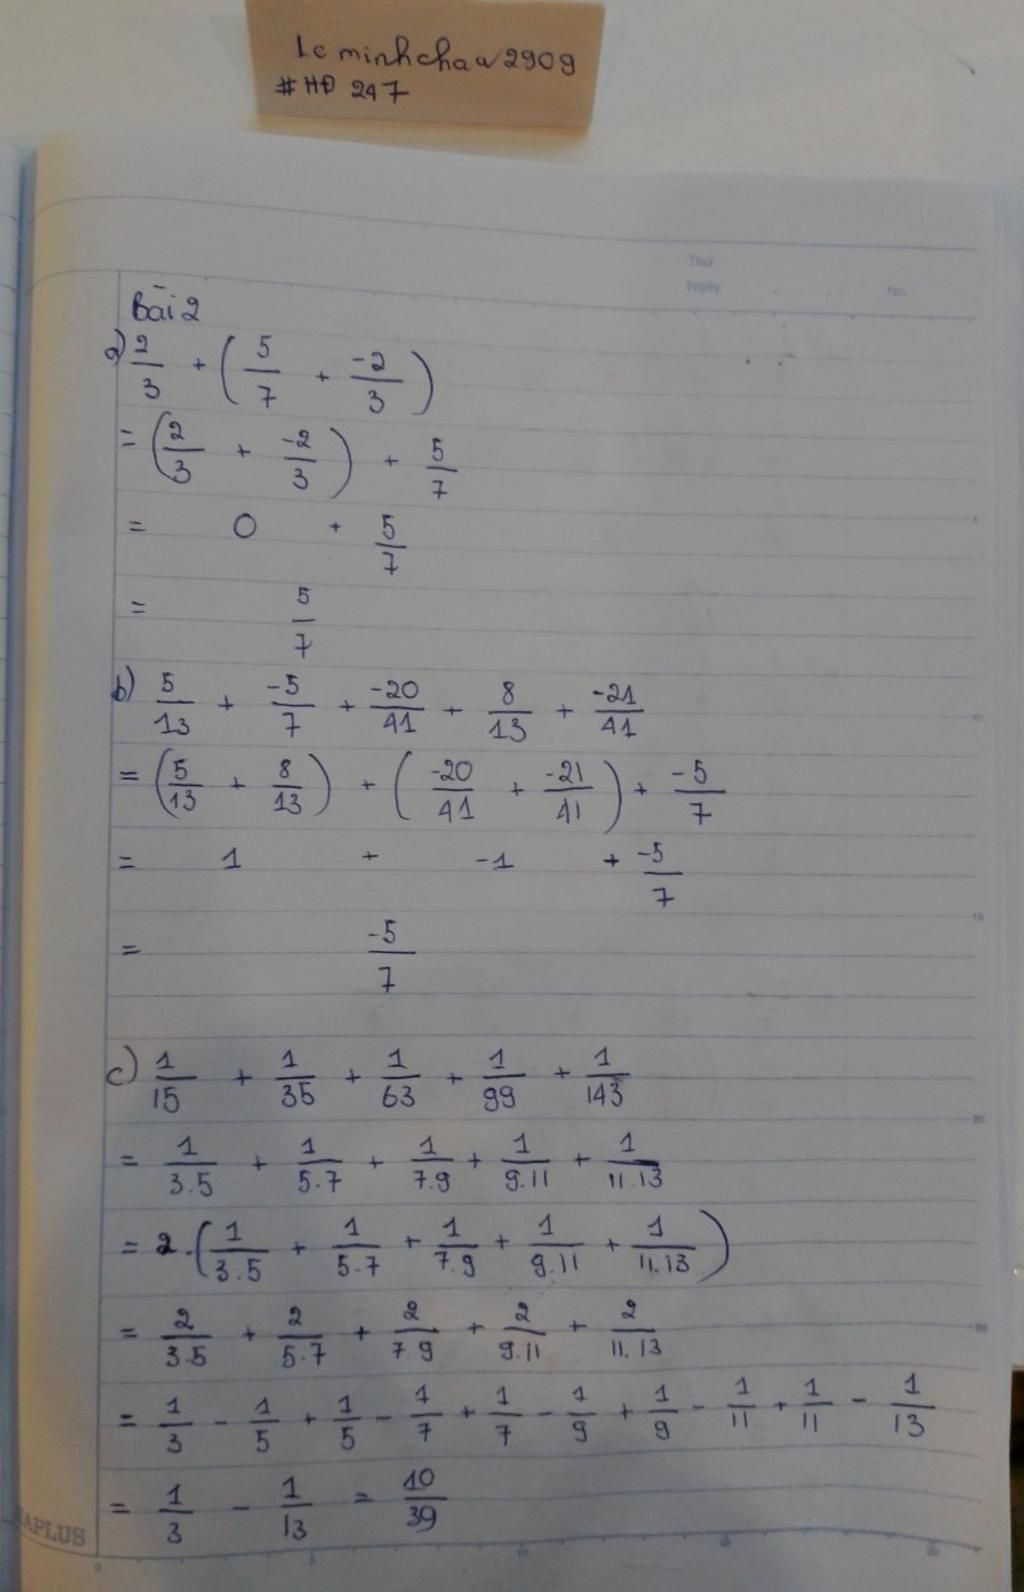 leminhchau2909
#HĐ 247
Thứ
Ngày No.
Bài 2
a) 2/3 + (5/7 + -2/3)
= (2/3 + -2/3) + 5/7
= 0 + 5/7
= 5/7
b) 5/13 + -5/7 + -20/41 + 8/13 + -21/41
= (5/13 + 8/13) + (-20/41 + -21/41) + -5/7
= 1 + -1 + -5/7
= -5/7
c) 1/15 + 1/35 + 1/63 + 1/99 + 1/143
= 1/3.5 + 1/5.7 + 1/7.9 + 1/9.11 + 1/11.13
= 2.(1/3.5 + 1/5.7 + 1/7.9 + 1/9.11 + 1/11.13)
= 2/3.5 + 2/5.7 + 2/7.9 + 2/9.11 + 2/11.13
= 1/3 - 1/5 + 1/5 - 1/7 + 1/7 - 1/9 + 1/9 - 1/11 + 1/11 - 1/13
= 1/3 - 1/13 = 10/39